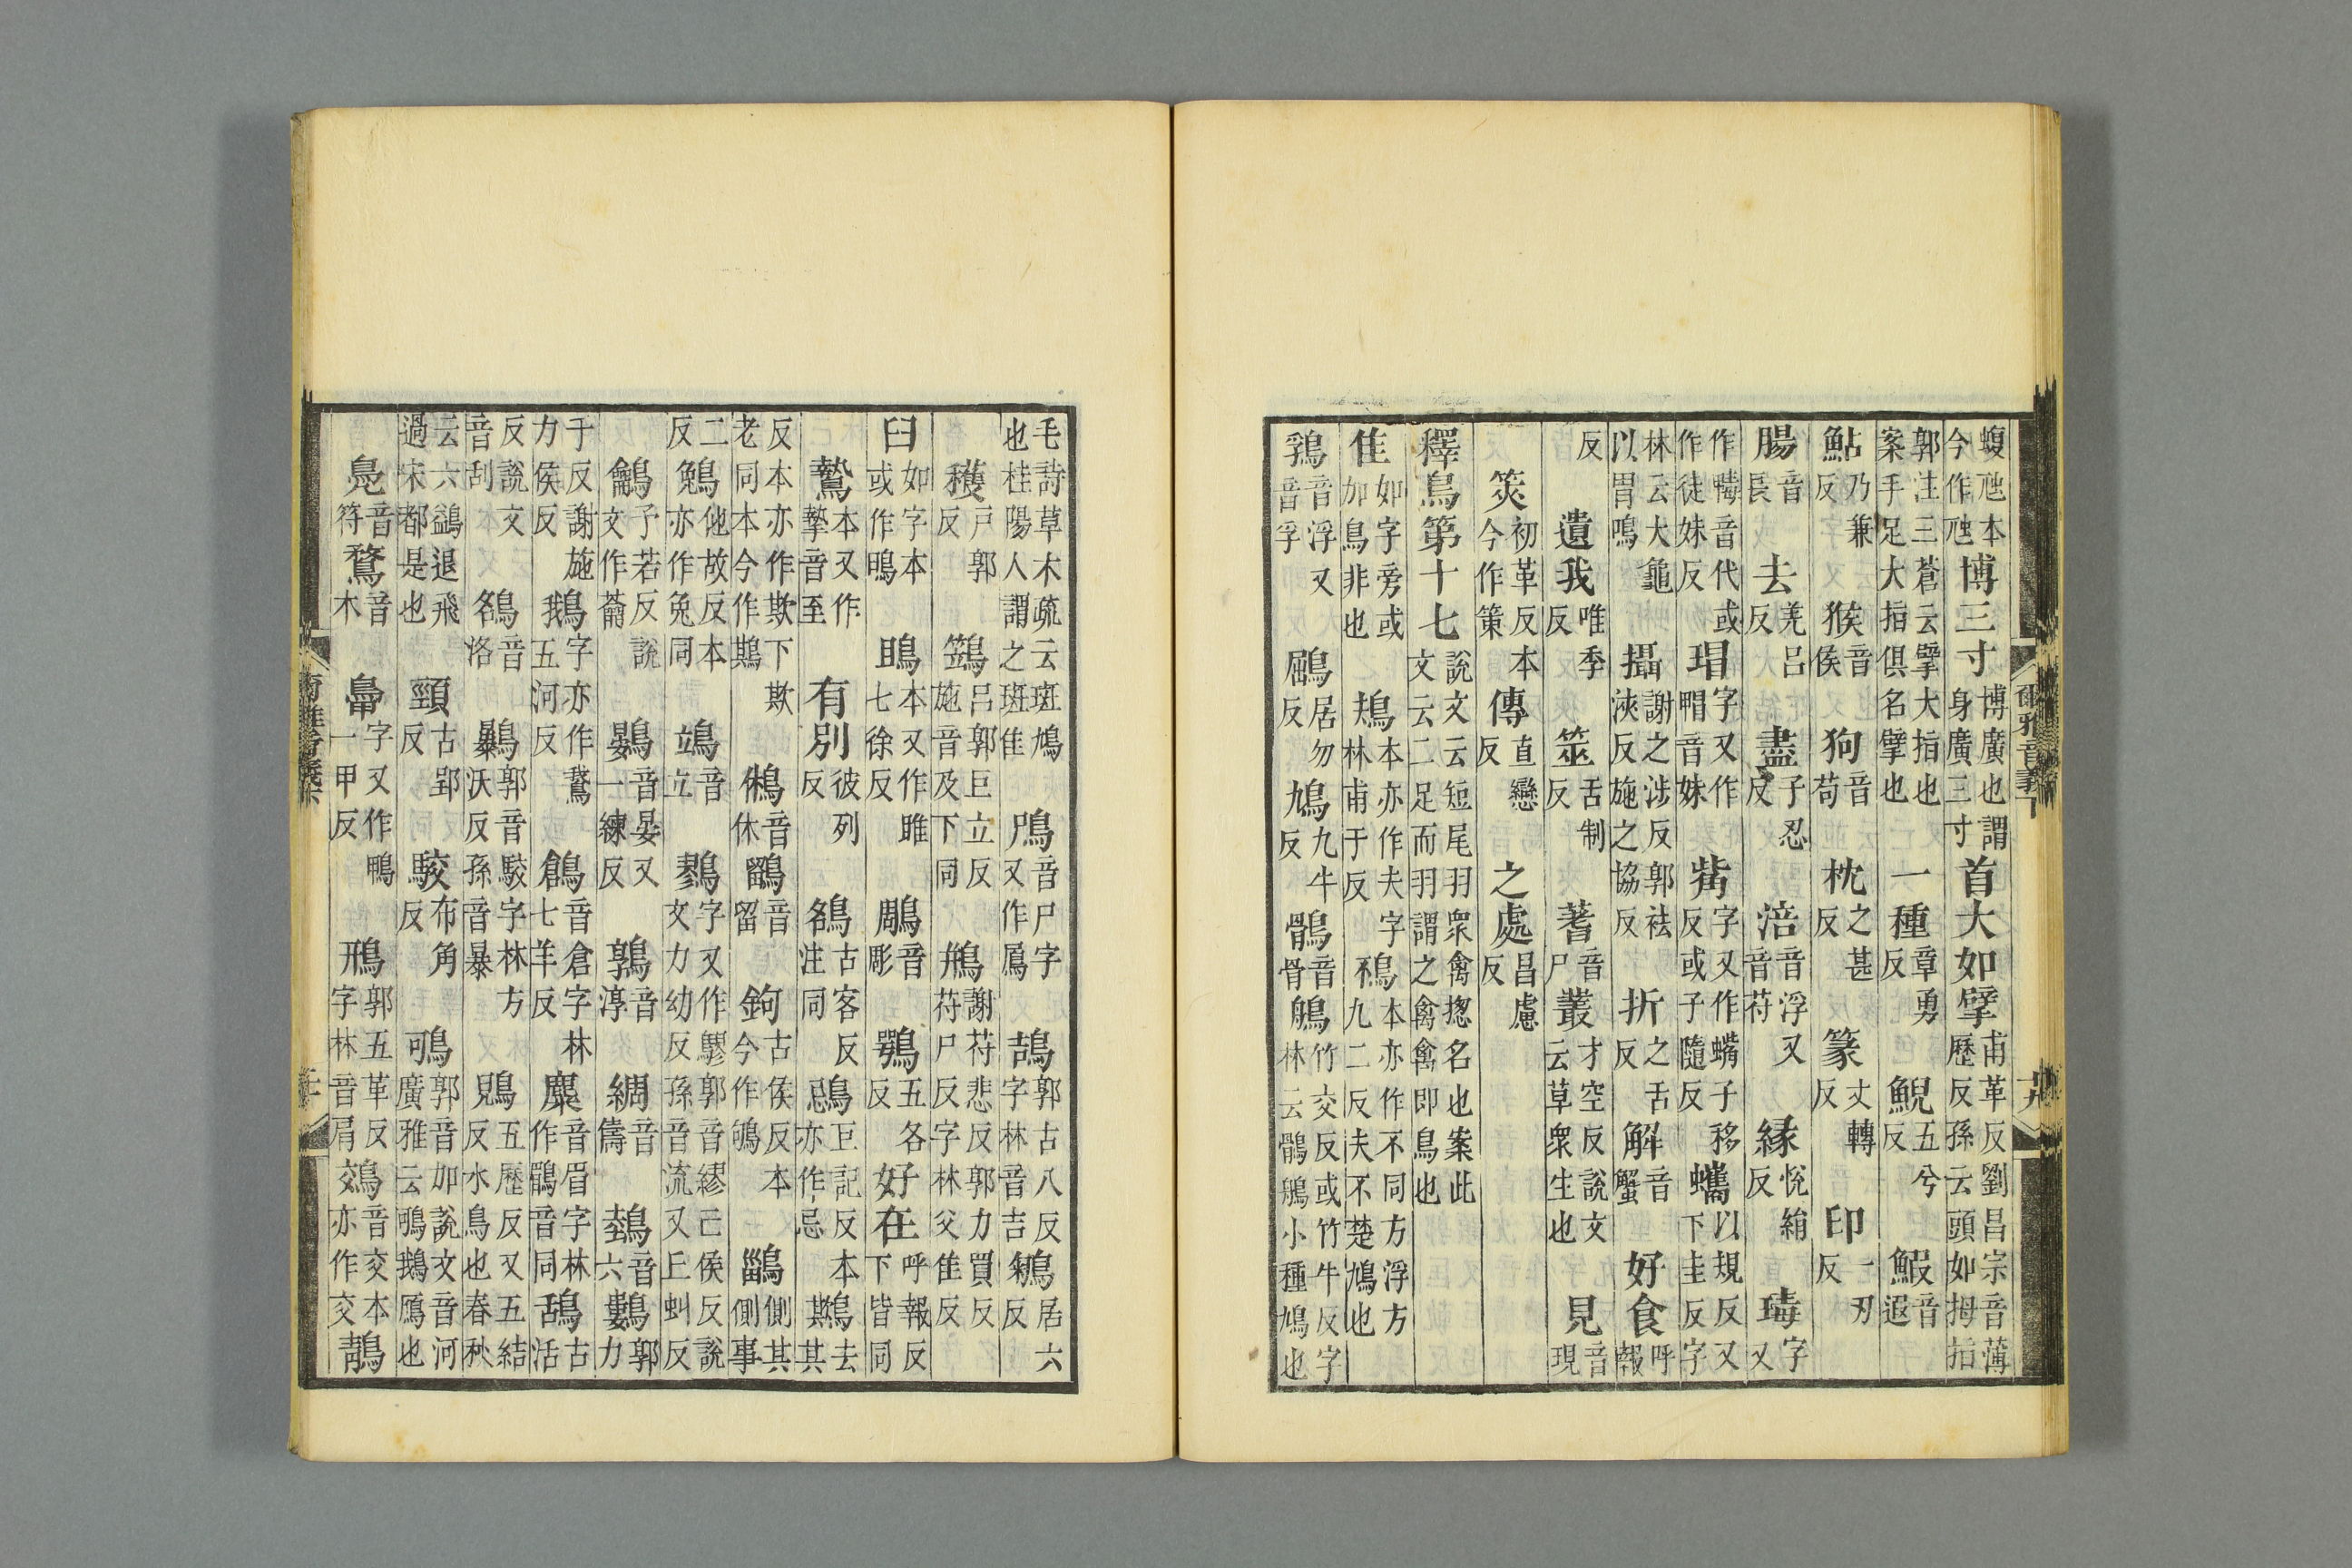 蝮虺本今作虺博三寸博廣也謂身廣三寸首大如擘甫革反劉昌宗音薄歷反孫云頭如拇指
郭注三蒼云擘大指也案手足大指俱名擘也一種章勇反鯢五兮反鰕音遐
鮎乃兼反猴音侯狗音苟枕之甚反篆丈轉反印一刃反
腸音長去羌呂反盡子忍反涪音浮又音苻緣悅絹反瑇字又
作蝳音代或作徒妹反瑁字又作𧌏音妹觜字又作蟕子移反或子隨反蠵以規反又下圭反字
林云大龜以胃鳴攝謝之涉反郭袪浹反施之協反折之舌反解音蟹好食呼報
反遺我唯季反筮舌制反蓍音尸叢才空反說文云草衆生也見音現
筴初革反本今作策傳直戀反之處昌慮反
釋鳥第十七說文云短尾羽衆禽揔名也案此文云二足而羽謂之禽禽即鳥也
隹如字旁或加鳥非也鳺本亦作夫字林甫于反鴀本亦作不同方浮方九二反夫不楚鳩也
鶉音浮又音孚鶌居勿反鳩九牛反鶻音骨鵃竹交反或竹牛反字林云鶻鵃小種鳩也
毛詩草木疏云斑鳩也桂陽人謂之斑隹鳲音尸字又作鳲鴶郭古八反字林音吉鵴居六反
穫戶郭反鴗呂郭巨立反施音及下同鵧謝苻悲反郭力買反苻尸反字林父隹反
臼如字本或作鴡鴡本又作雎七徐反鵰音彫鶚五各反好在呼報反下皆同
鷙本又作摯音至有別彼列反鵅古客反注同鵋亘記反本亦作忌鶀去其
反本亦作欺下欺老同本今作鶀鵂音休鶹音留鉤古侯反本今作鴝鶅側其側事
二反鵵他故反本亦作兔同鴗音立鷚字又作鷚郭音繆己侯反說文力幼反孫音流又丘虯反
鸙予若反說文作蘥鷃音晏又一練反鶉音淳綢音儔鷜音六鷜郭力
于反謝施力侯反鵝字亦作䳘五河反鶬音倉字林七羊反麋音眉字林作鶥音同鴰古活
反說文音刮鵅音洛鸔郭音駁字林方沃反孫音暴鶂五歷反又五結反水鳥也春秋
云六鷁退飛過宋都是也頸古郢反駮布角反鴚郭音如說文音河廣雅云鴚鵝鴈也
鳧音符鶩音木鴨字又作鴨一甲反鳽郭五革反字林音肩鵁音交本亦作交鶄
爾雅音義下
廿
爾雅音義下